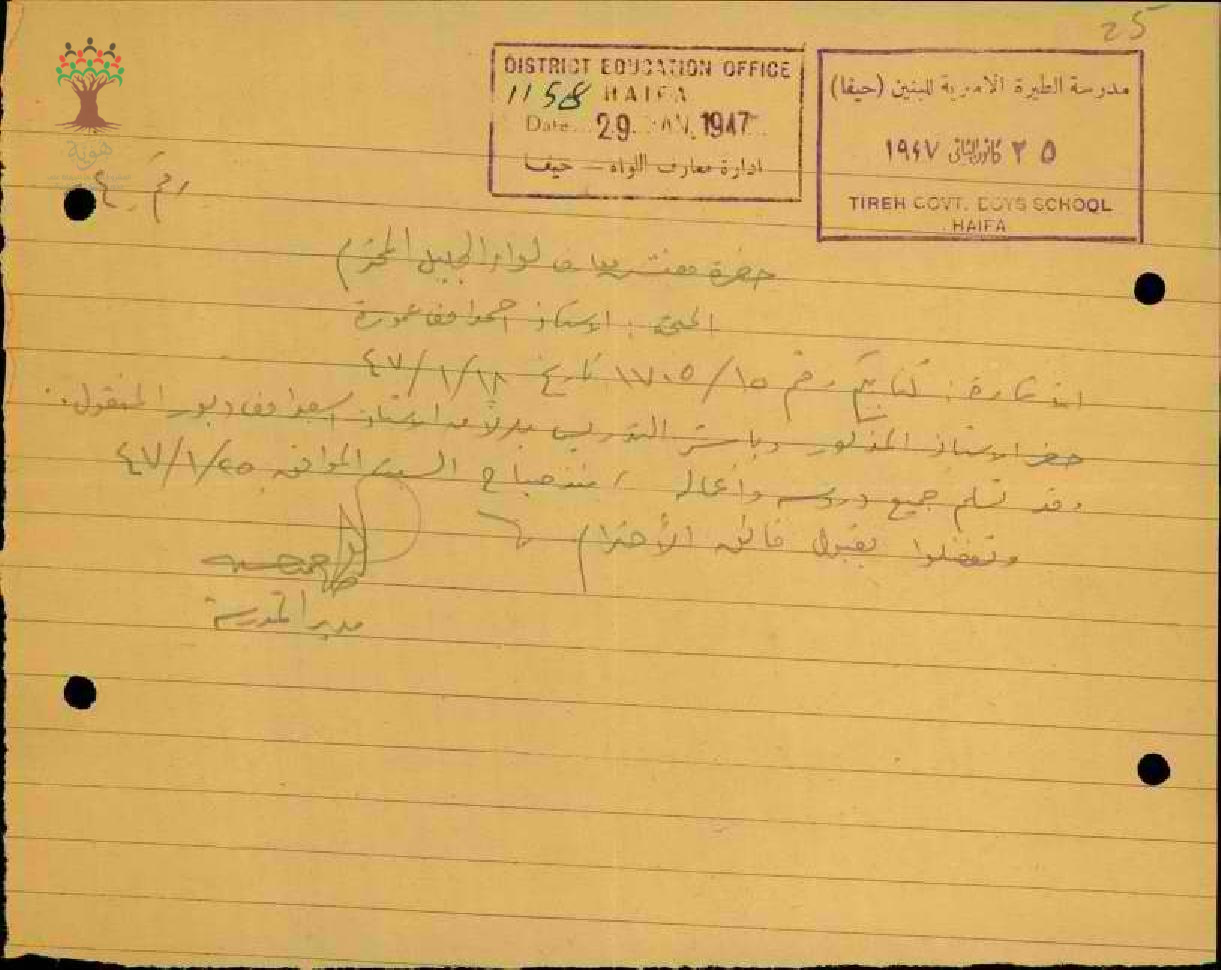 25
DISTRICT EDUCATION OFFICE
1158 HAIFA
Date. 29. JAN. 1947
ادارة معارف اللواء – حيفا
مدرسة الطيرة الاميرية للبنين (حيفا)
٢٥ كانون الثاني ١٩٤٧
TIREH GOVT. BOYS SCHOOL
HAIFA
هوية
حضرة مفتش معارف لواء الجليل المحترم
الاستاذ احمد
كتابكم رقم ١٧٠٥/١٥ تاريخ ٤٧/١/١٨
حضر الاستاذ المذكور وباشر التدريس بدلا من الاستاذ المنقول.
وقد تسلم جميع دروسه واعماله منذ صباح السبت الموافق ٤٧/١/٢٥
وتفضلوا بقبول فائق الأحترام
مدير المدرسة